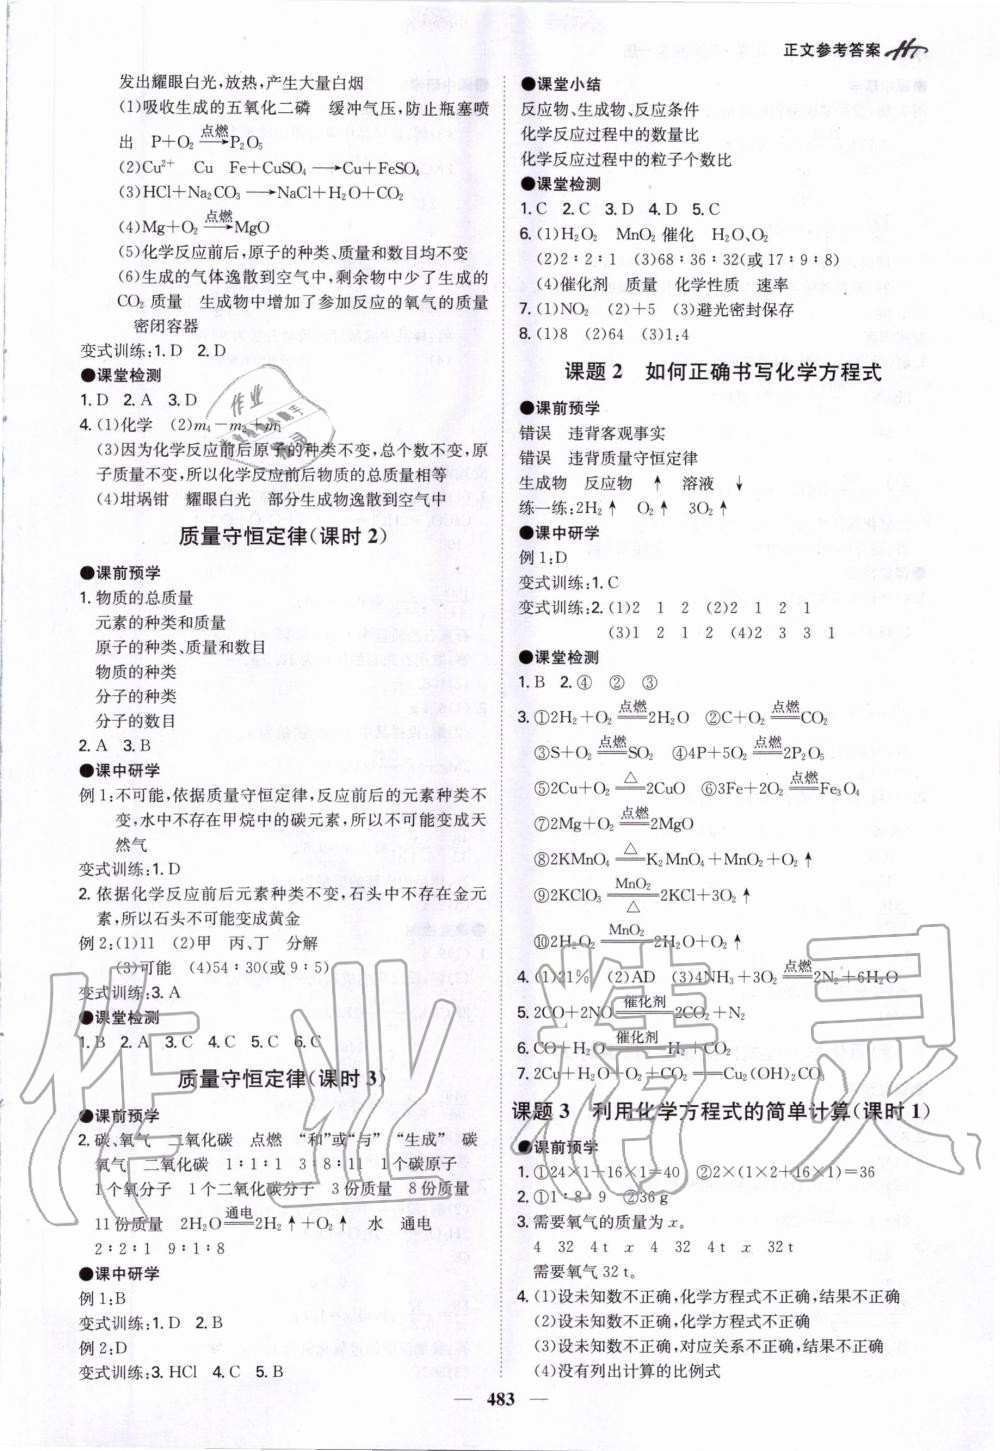 正文参考答案
发出耀眼白光,放热,产生大量白烟
(1)吸收生成的五氧化二磷　缓冲气压,防止瓶塞喷
出　P+O₂ —点燃→ P₂O₅
(2)Cu²⁺　Cu　Fe+CuSO₄ ⟶ Cu+FeSO₄
(3)HCl+Na₂CO₃ ⟶ NaCl+H₂O+CO₂
(4)Mg+O₂ —点燃→ MgO
(5)化学反应前后,原子的种类、质量和数目均不变
(6)生成的气体逸散到空气中,剩余物中少了生成的
CO₂ 质量　生成物中增加了参加反应的氧气的质量
密闭容器
变式训练:1. D　2. D
●课堂检测
1. D　2. A　3. D
4. (1)化学　(2)m₄－m₂+m₁
(3)因为化学反应前后原子的种类不变,总个数不变,原
子质量不变,所以化学反应前后物质的总质量相等
(4)坩埚钳　耀眼白光　部分生成物逸散到空气中
质量守恒定律(课时 2)
●课前预学
1. 物质的总质量
元素的种类和质量
原子的种类、质量和数目
物质的种类
分子的种类
分子的数目
2. A　3. B
●课中研学
例 1:不可能,依据质量守恒定律,反应前后的元素种类不
变,水中不存在甲烷中的碳元素,所以不可能变成天
然气
变式训练:1. D
2. 依据化学反应前后元素种类不变,石头中不存在金元
素,所以石头不可能变成黄金
例 2:(1)11　(2)甲　丙、丁　分解
(3)可能　(4)54∶30(或 9∶5)
变式训练:3. A
●课堂检测
1. B　2. A　3. C　4. C　5. C　6. C
质量守恒定律(课时 3)
●课前预学
2. 碳、氧气　二氧化碳　点燃　“和”或“与”　“生成”　碳
氧气　二氧化碳　1∶1∶1　3∶8∶11　1个碳原子
1个氧分子　1个二氧化碳分子　3份质量　8份质量
11份质量　2H₂O ═通电═ 2H₂↑+O₂↑　水　通电
2∶2∶1　9∶1∶8
●课中研学
例 1:B
变式训练:1. D　2. B
例 2:D
变式训练:3. HCl　4. C　5. B
●课堂小结
反应物、生成物、反应条件
化学反应过程中的数量比
化学反应过程中的粒子个数比
●课堂检测
1. C　2. C　3. D　4. D　5. C
6. (1)H₂O₂　MnO₂ 催化　H₂O、O₂
(2)2∶2∶1　(3)68∶36∶32(或 17∶9∶8)
(4)催化剂　质量　化学性质　速率
7. (1)NO₂　(2)+5　(3)避光密封保存
8. (1)8　(2)64　(3)1:4
课题 2　如何正确书写化学方程式
●课前预学
错误　违背客观事实
错误　违背质量守恒定律
生成物　反应物　↑　溶液　↓
练一练:2H₂↑　O₂↑　3O₂↑
●课中研学
例 1:D
变式训练:1. C
变式训练:2. (1)2　1　2　(2)2　1　2　1
(3)1　2　1　2　(4)2　3　3　1
●课堂检测
1. B　2. ④　②　③
3. ①2H₂+O₂ ═点燃═ 2H₂O　②C+O₂ ═点燃═ CO₂
③S+O₂ ═点燃═ SO₂　④4P+5O₂ ═点燃═ 2P₂O₅
⑤2Cu+O₂ ═△═ 2CuO　⑥3Fe+2O₂ ═点燃═ Fe₃O₄
⑦2Mg+O₂ ═点燃═ 2MgO
⑧2KMnO₄ ═△═ K₂MnO₄+MnO₂+O₂↑
⑨2KClO₃ ═MnO₂/△═ 2KCl+3O₂↑
⑩2H₂O₂ ═MnO₂═ 2H₂O+O₂↑
4. (1)21%　(2)AD　(3)4NH₃+3O₂ ═点燃═ 2N₂+6H₂O
5. 2CO+2NO ═催化剂═ 2CO₂+N₂
6. CO+H₂O ═催化剂═ H₂+CO₂
7. 2Cu+H₂O+O₂+CO₂ ═══ Cu₂(OH)₂CO₃
课题 3　利用化学方程式的简单计算(课时 1)
●课前预学
1. ①24×1+16×1=40　②2×(1×2+16×1)=36
2. ①1∶8∶9　②36 g
3. 需要氧气的质量为 x。
4　32　4 t　x　4　32　4 t　x　32 t
需要氧气 32 t。
4. (1)设未知数不正确,化学方程式不正确,结果不正确
(2)设未知数不正确,化学方程式不正确
(3)设未知数不正确,对应关系不正确,结果不正确
(4)没有列出计算的比例式
— 483 —
作业精灵